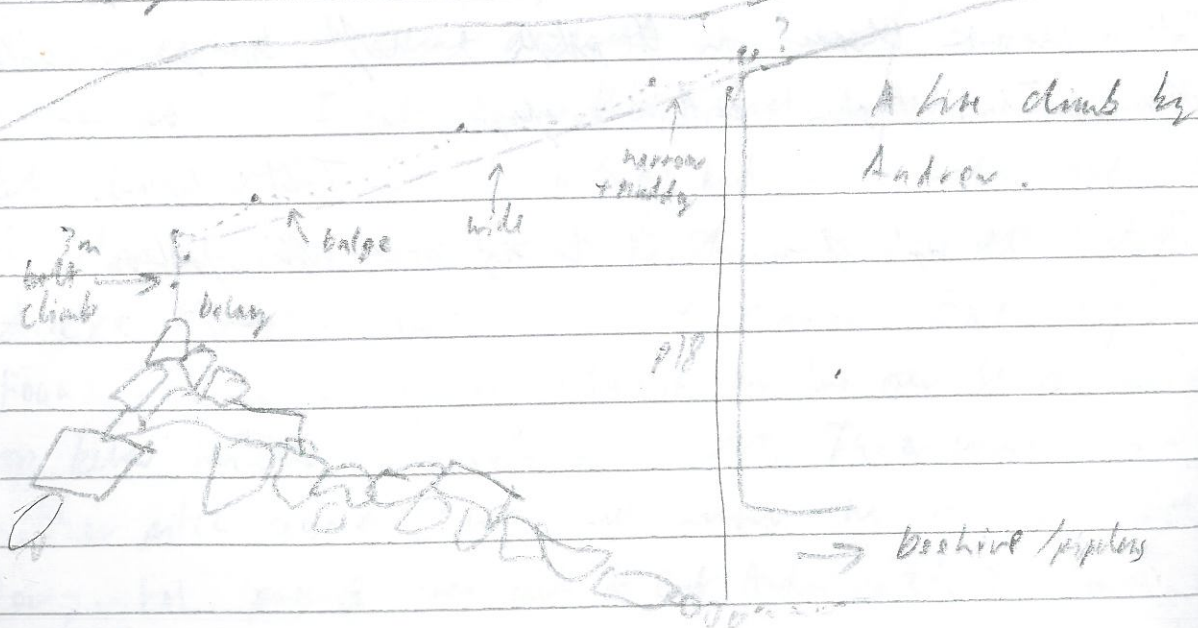 ?
A fine climb by
Andrew.
narrow
+ muddy
wide
bulge
7m
bolt
climb
belay
p18
→ Beehive /